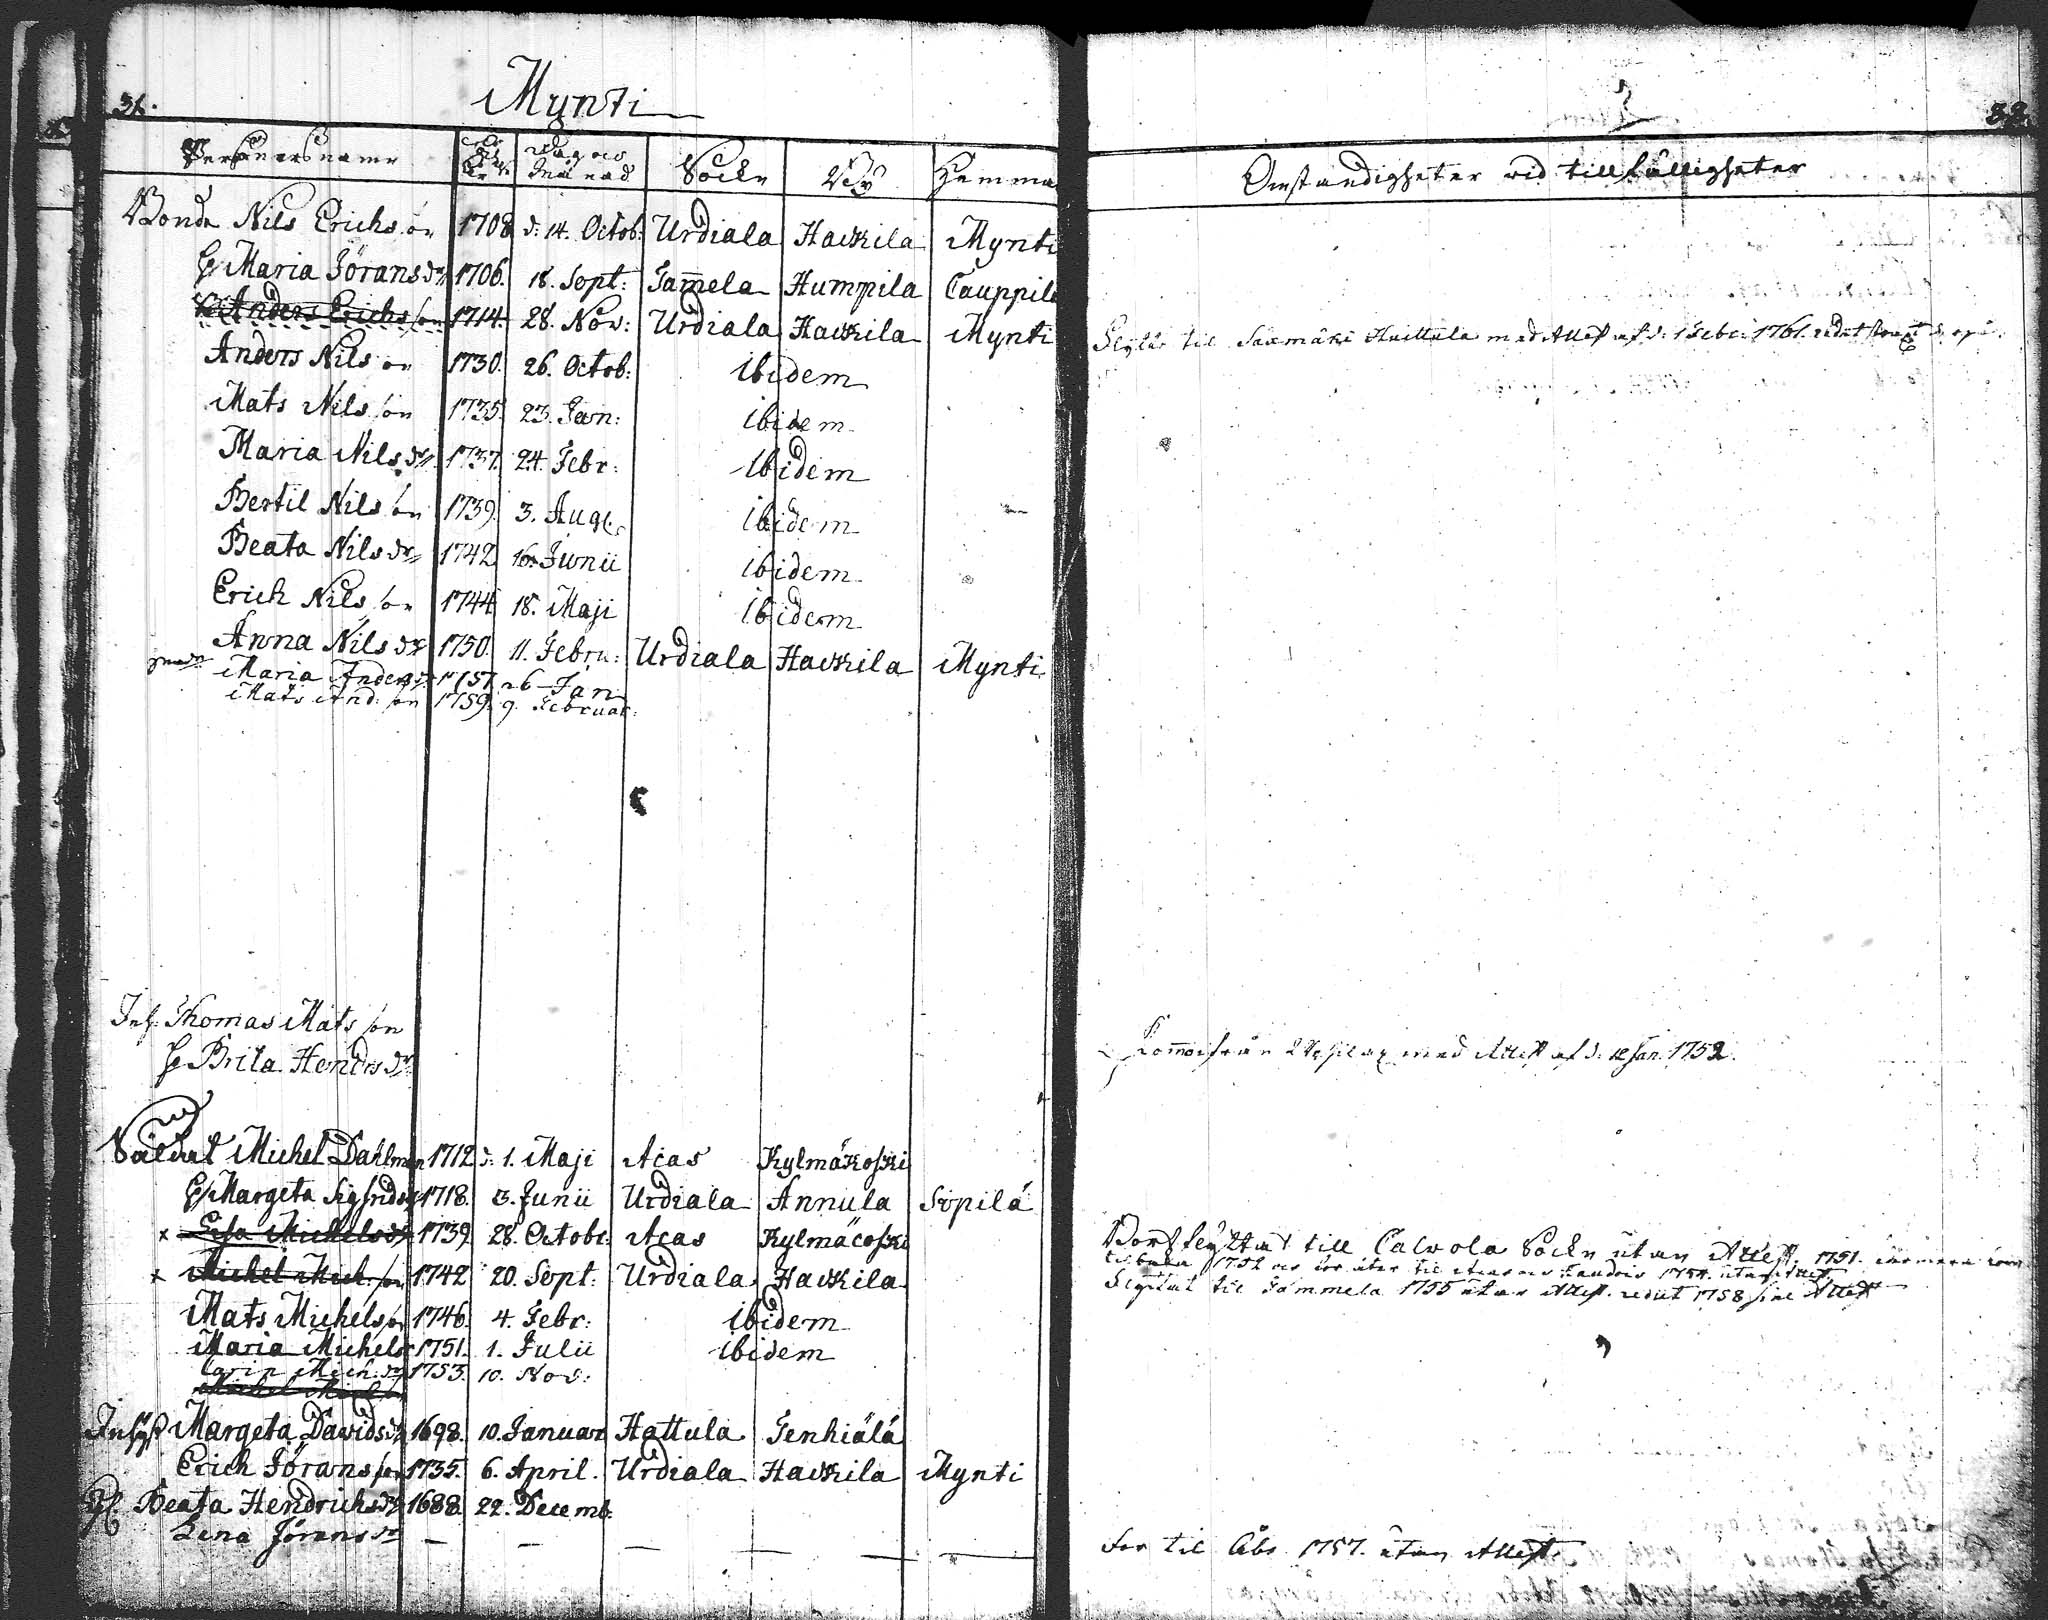 31.
Mynti
Personers namn Dag och Månad Sockn By Hemma
Bonde Nils Erichsson 1708 d. 14. Octob: Urdiala Hackila Mynti
H. Maria Jöransdr 1706. 18. Sept: Jam̅ela Humpila Tauppila
Anders Erichsson 1714. 28. Nov: Urdiala Hackila Mynti
Anders Nilsson 1730. 26. Octob: ibidem
Mats Nilsson 1735. 23. Jan: ibidem
Maria Nilsdr 1737. 24. Febr: ibidem
Bertil Nilsson 1739. 3. Aug: ibidem
Beata Nilsdr 1742 16. Junii ibidem
Erich Nilsson 1744 18. Maji ibidem
Anna Nilsdr 1750. 11. Febru: Urdiala Hackila Mynti
Maria Andersdr 1757 26 Jan
Mats And:son 1759. 9. Februar:
Inh: Thomas Matsson
H Brita Hendrsdr
Soldat Michel Dahlman 1712 d. 1. Maji Acas Kylmäkoski
H Margeta Sigfridsdr 1718. 3. Junii Urdiala Annula Sopilá
x Lisa Michelsdr 1739. 28. Octobr: Acas Kylmäcoski
x Michel Mich:son 1742 20. Sept: Urdiala Hackila
Mats Michelsson 1746. 4. Febr: ibidem
Maria Michelsdr 1751. 1. Julii ibidem
Carin Mich:dr 1753. 10. Nov:
Michel Michsson
Inhys Margeta Davidsdr 1698. 10. Januar Hattula Jenhiälá
Erich Jöransson 1735. 6. April. Urdiala Hackila Mynti
Beata Hendrichsdr 1688. 22. Decemb.
Lena Jöransdr — — — — — —
32.
Omständigheter vid tillfälligheter
Flyttr til Saxmäki Huittula med Attest af d: 1 Febr: 1761.
Kom̅o ifrån med Attest af d: 12 Jan. 1752.
Bortflyttat till Calvola Sockn utan Attest. 1751.
tilbaka 1752 1754. utan Attest.
Flyttat til Jammela 1755 utan Attest. rediit 1758 sine Attest
for til Åbo 1757. utan Attest.